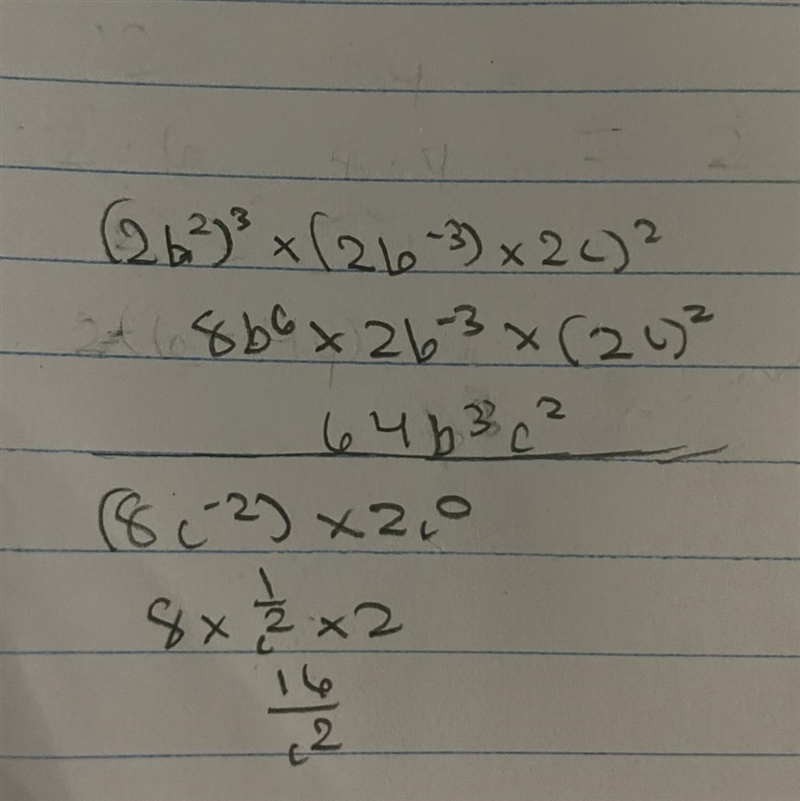 (2b²)³ × (2b⁻³) × 2c)²
8b⁶ × 2b⁻³ × (2c)²
64b³c²
(8c⁻²) × 2c⁰
8 × 1/c² × 2
16/c²